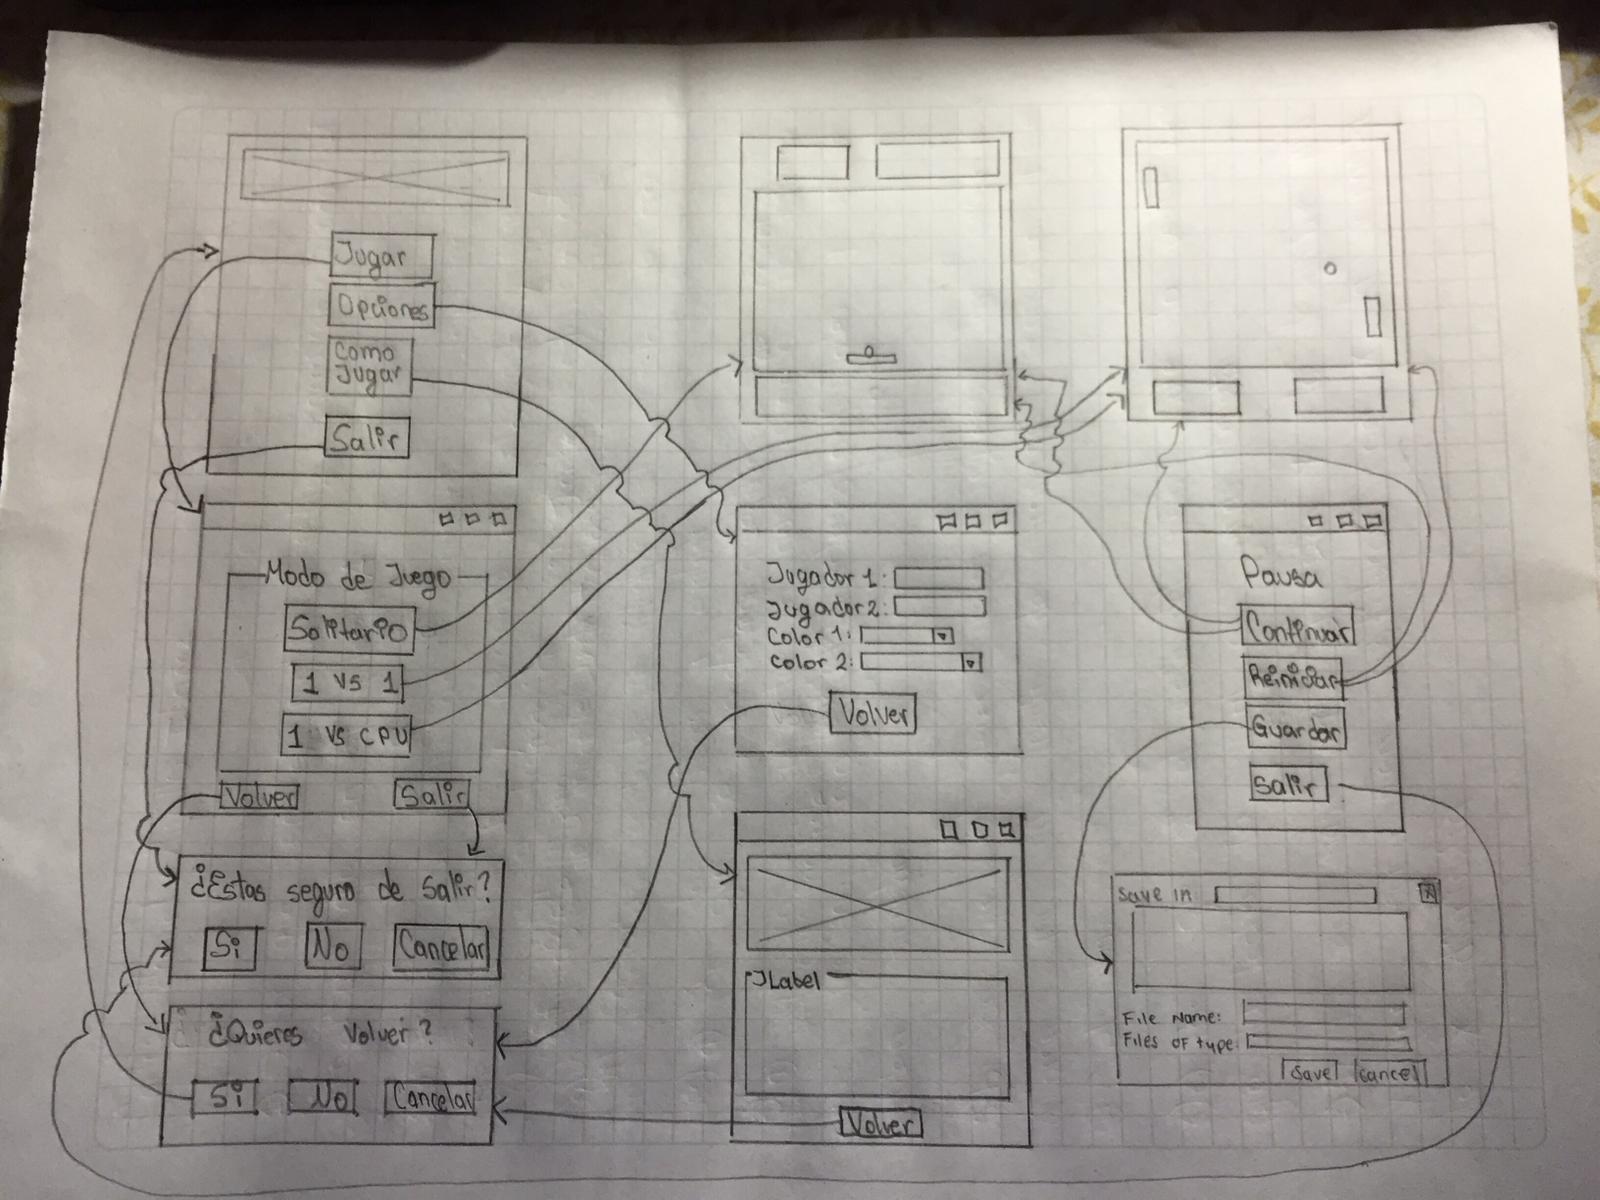 Jugar
Opciones
Como
Jugar
Salir
Modo de Juego
Solitario
1 vs 1
1 vs CPU
Volver
Salir
¿Estas seguro de Salir?
Si
No
Cancelar
¿Quieres Volver?
Si
No
Cancelar
Jugador 1:
Jugador 2:
Color 1:
Color 2:
Volver
JLabel
Volver
Pausa
Continuar
Reiniciar
Guardar
Salir
Save in
X
File Name:
Files OF type:
Save
cancel